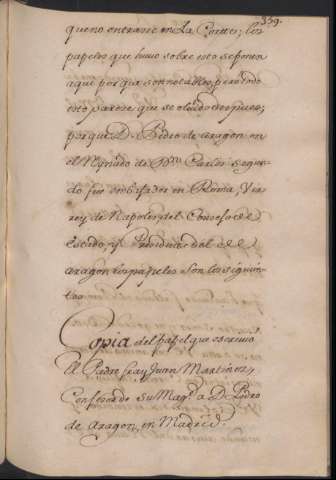 339.
que no entrase en La Corte; los
papeles que huuo sobre esto se ponen
aqui porque son notables, pero todo
esto parece que se oluido despues;
porque D. Pedro de Aragon en
el Reynado de Dn Carlos Segun-
do fue embaxador en Roma, Vir
rey de Napoles, del Consejo de
estado, y Presidente del de
Aragon los papeles son los siguien
tes.
Copia del papel que escriuio
El Padre fray Juan Martinez,
Confesor de Su Magd. a D. Pedro
de Aragon, en Madrid.